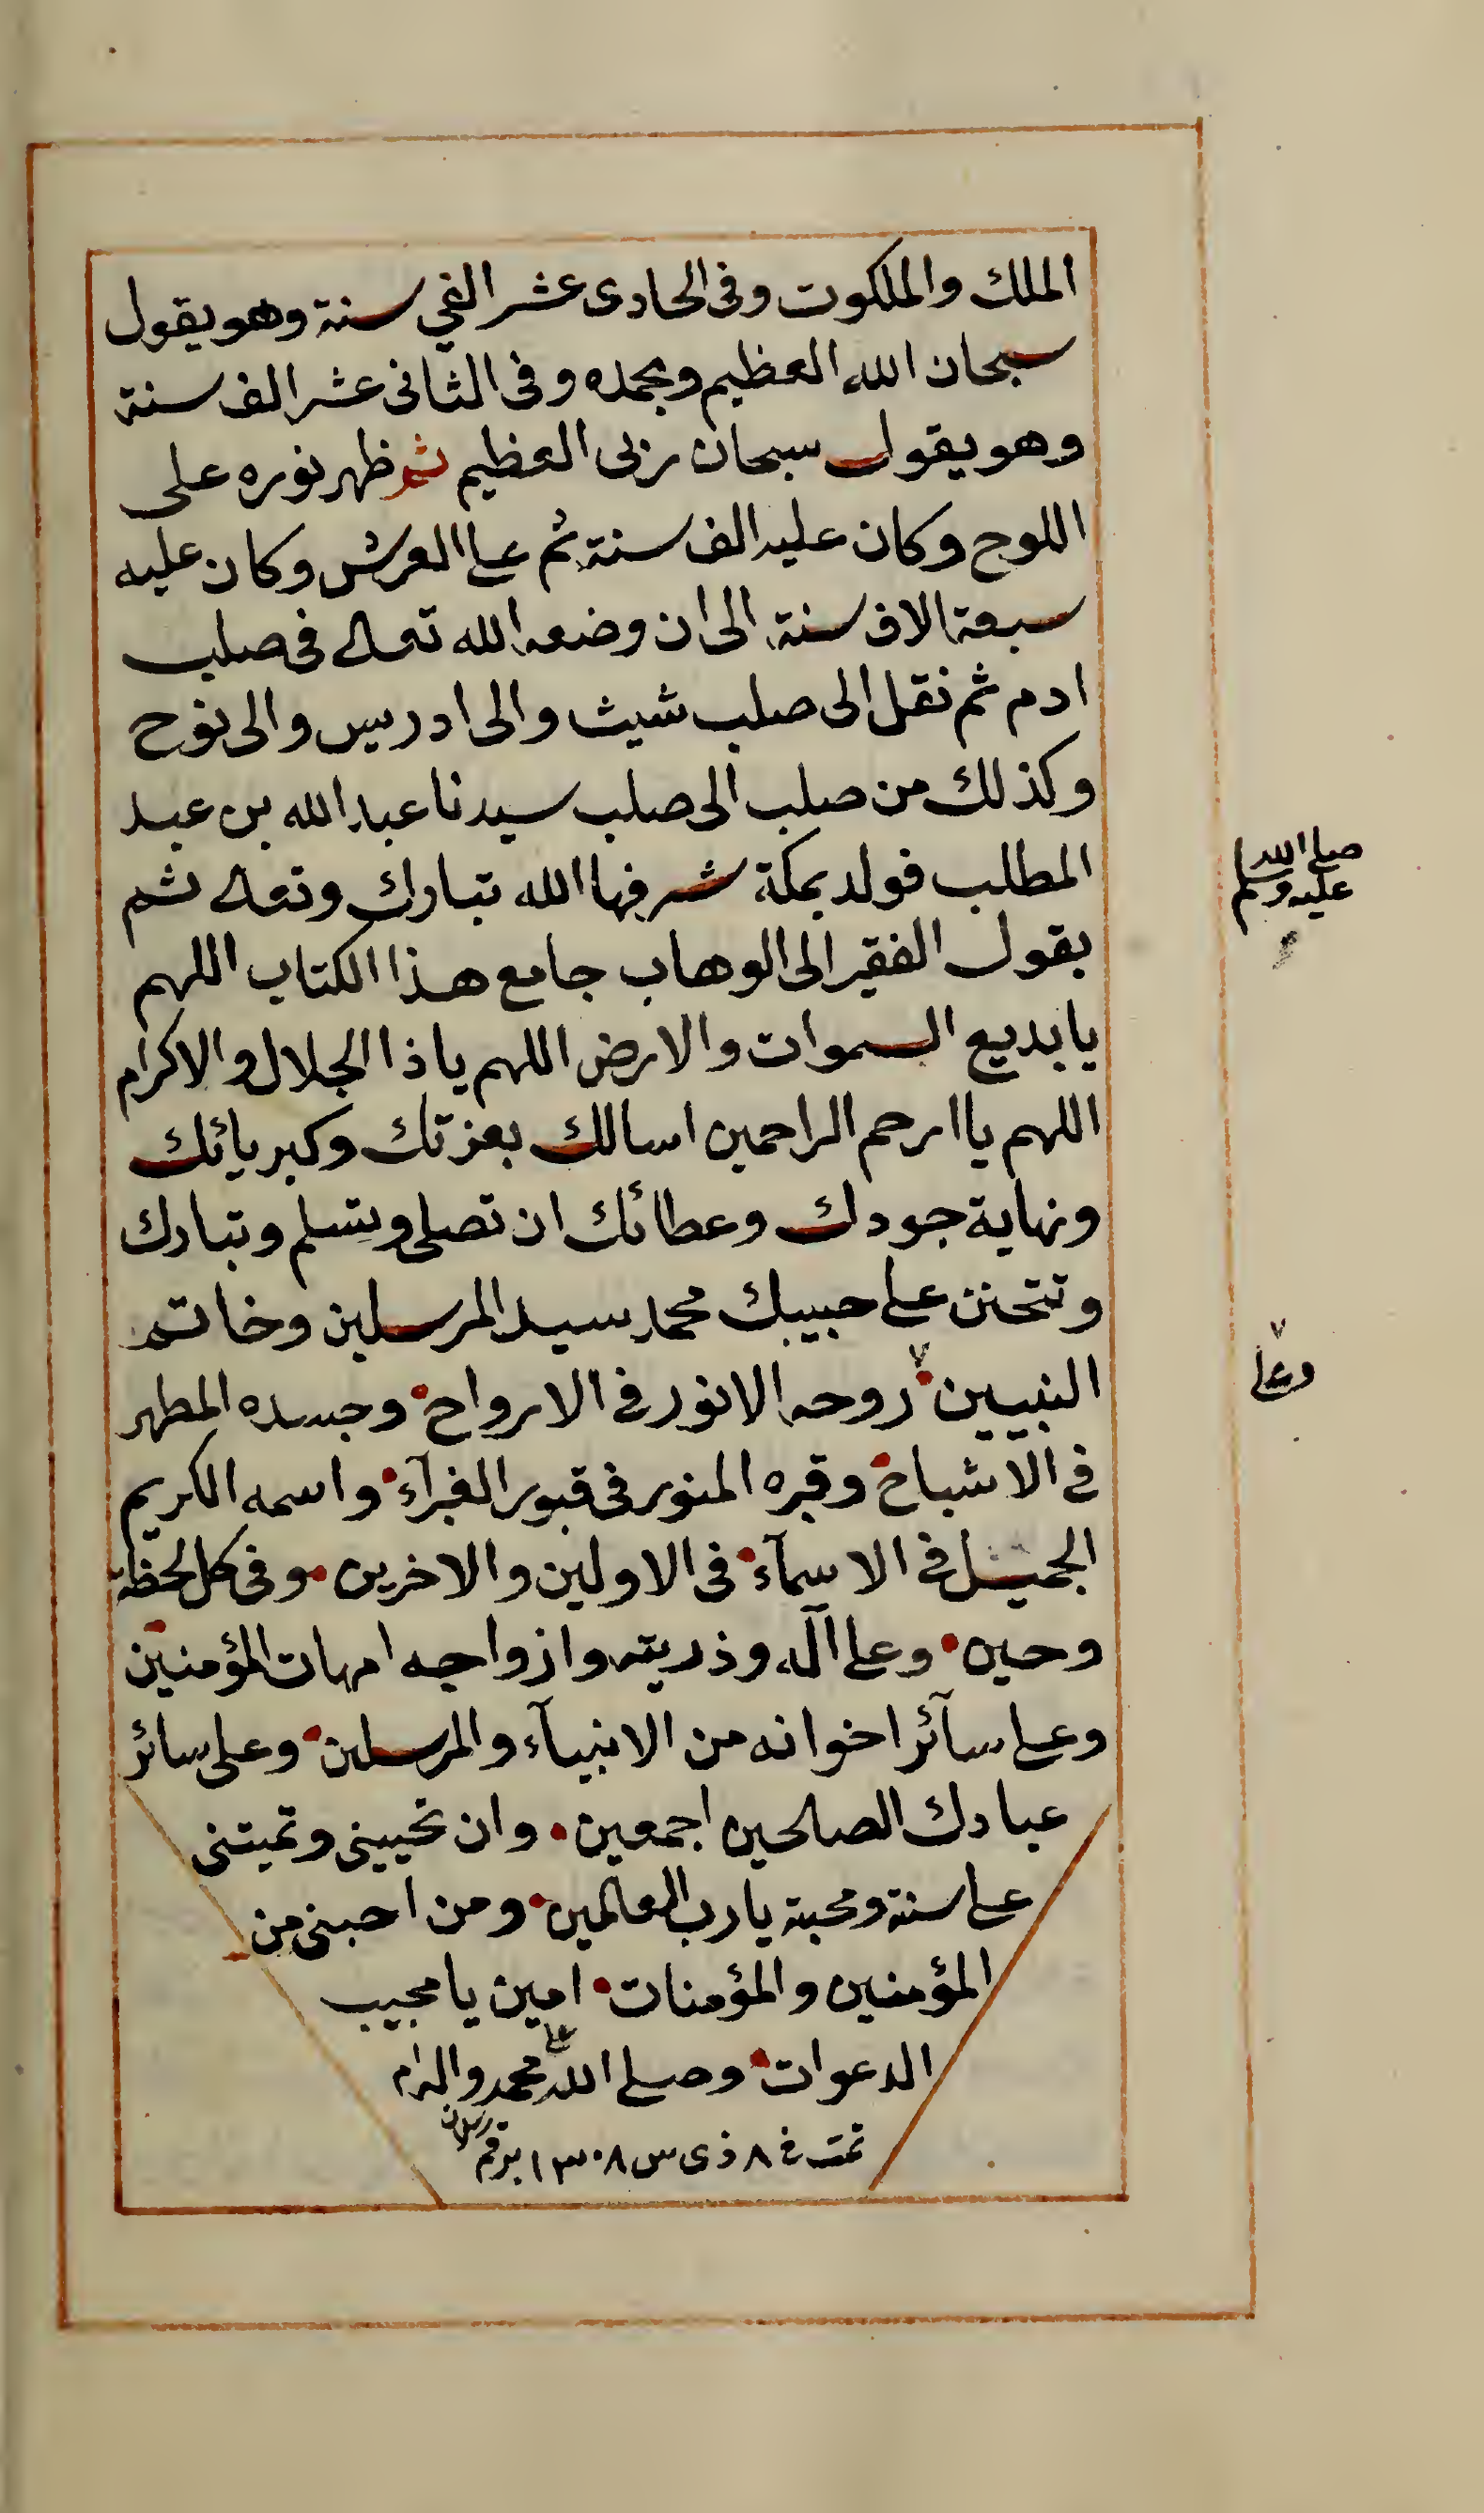 الملك والملكوت وفى الحادى عشر الفي سنة وهو يقول
سبحان الله العظيم وبحمده وفى الثانى عشر الف سنة
وهو يقول سبحان ربى العظيم ثم ظهر نوره على
اللوح وكان عليه الف سنة ثم على العرش وكان عليه
سبعة الاف سنة الى ان وضعه الله تعالى فى صلب
ادم ثم نقل الى صلب شيث والى ادريس والى نوح
وكذلك من صلب الى صلب سيدنا عبد الله بن عبد
المطلب فولد بمكة شرفها الله تبارك وتعالى ثم
صلى الله
عليه وسلم
يقول الفقير الى الوهاب جامع هذا الكتاب اللهم
يا بديع السموات والارض اللهم ياذا الجلال والاكرام
اللهم يا ارحم الراحمين اسالك بعزتك وكبريائك
ونهاية جودك وعطائك ان تصلى وتسلم وتبارك
وتتحنن على حبيبك محمد سيد المرسلين وخاتم
النبيين روحه الانور فى الارواح وجسده المطهر
وعلى
فى الاشباح وقبره المنور فى قبور الغبرآء واسمه الكريم
الجميل فى الاسمآء فى الاولين والاخرين وفى كل لحظة
وحين وعلى آله وذريته وازواجه امهات المؤمنين
وعلى سآئر اخوانه من الانبيآء والمرسلين وعلى سائر
عبادك الصالحين اجمعين وان تحيينى وتميتنى
على سنة ومحبة يارب العالمين ومن احبنى من
المؤمنين والمؤمنات امين يا مجيب
الدعوات وصلى الله على محمد واله
تمت فى ٨ ذى س ١٣٠٨ برقم